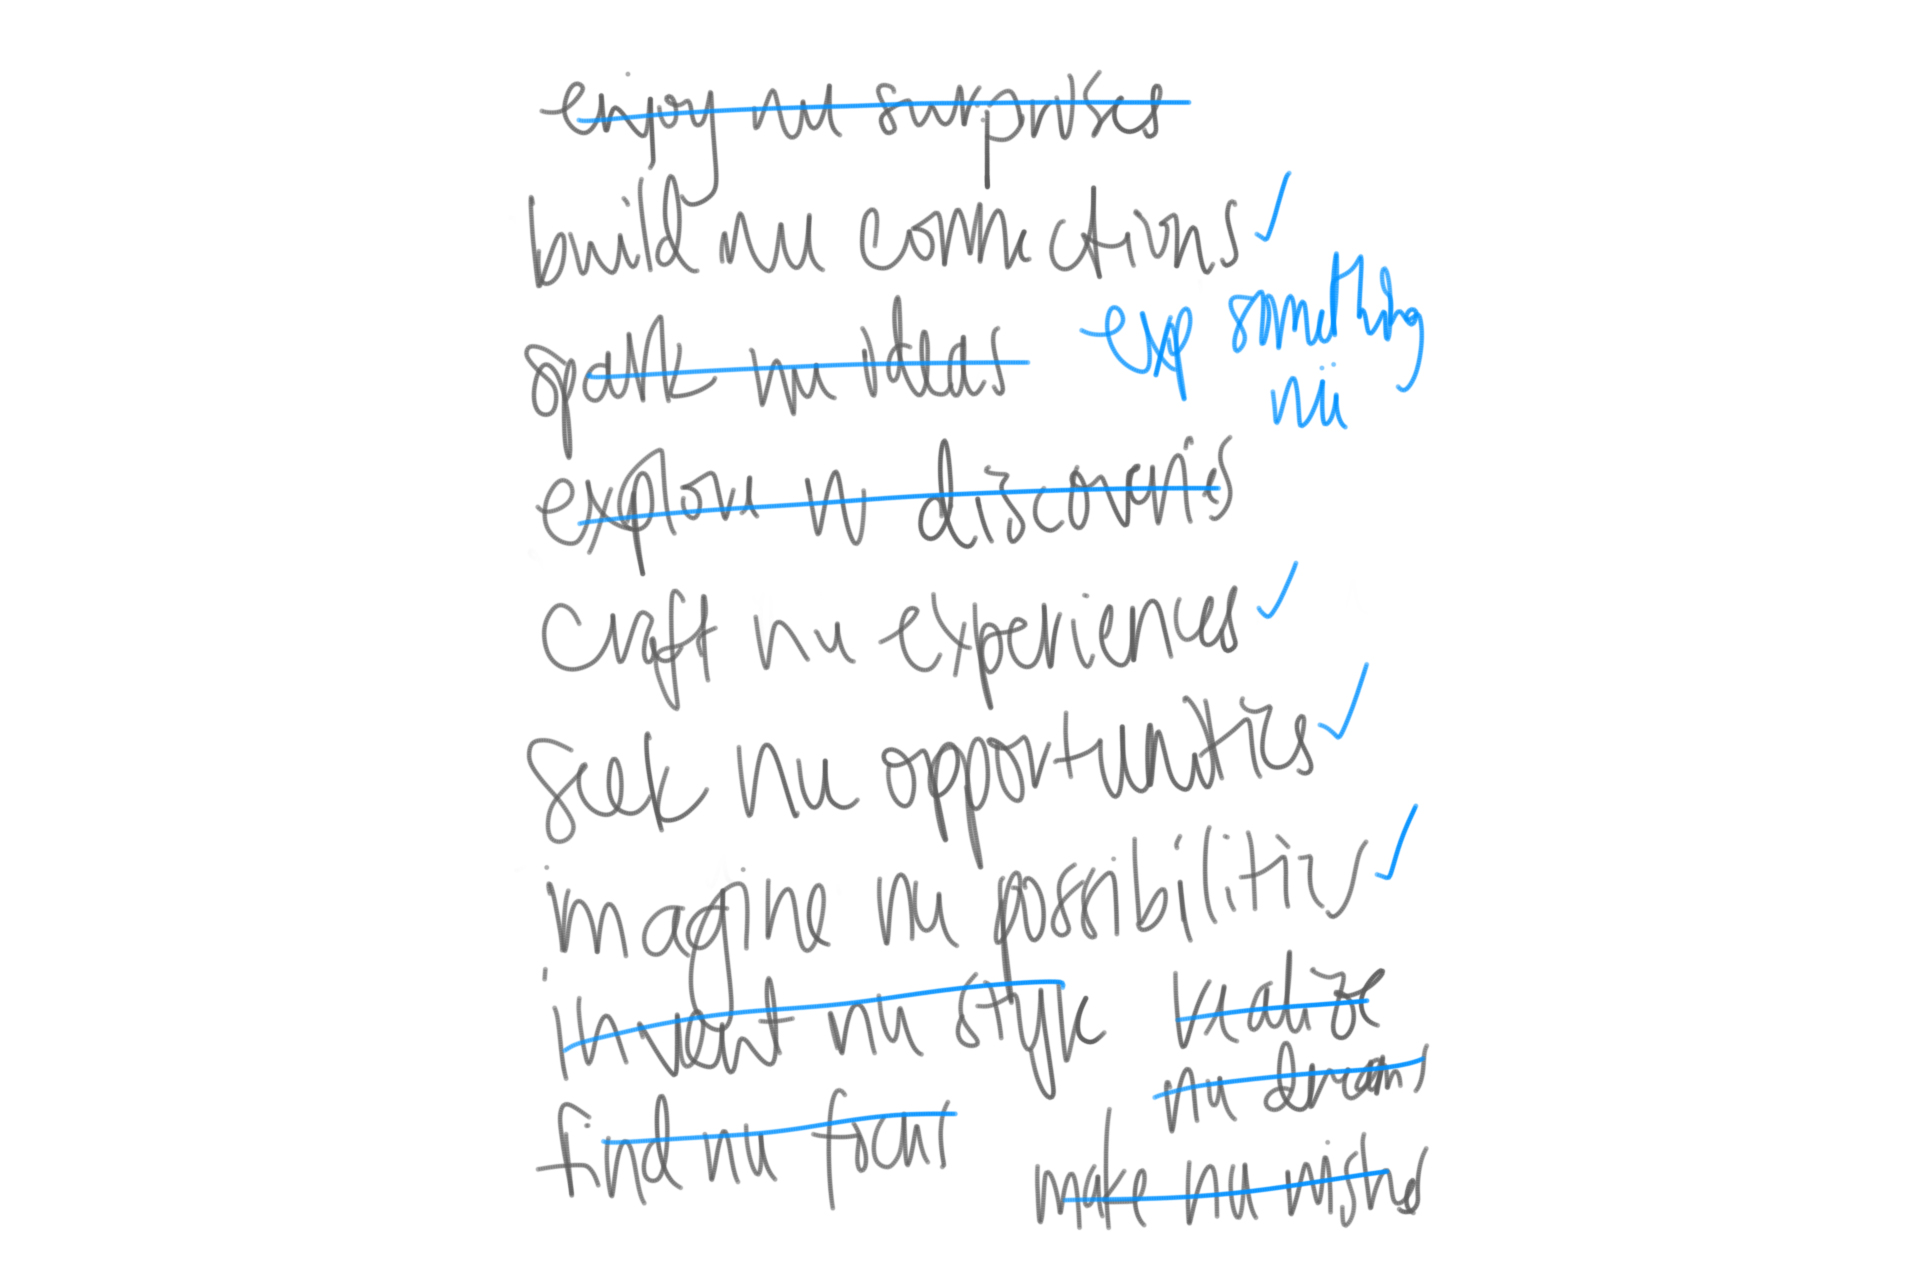 enjoy nu surprises
build nu connections
spark nu ideas
exp something
nü
explore nu discoveries
craft nu experiences
seek nu opportunities
imagine nu possibilities
invent nu style
realize
nu dreams
find nu focus
make nu wishes